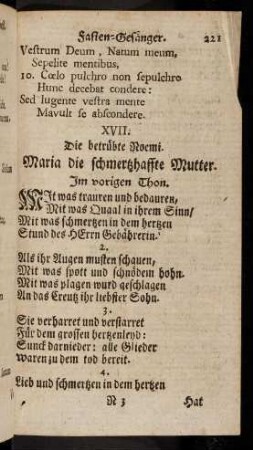 Fasten-Gesänger. 221
Vestrum Deum, Natum meum,
Sepelite mentibus,
10. Cœlo pulchro non sepulchro
Hunc decebat condere:
Sed lugente vestra mente
Mavult se abscondere.
XVII.
Die betrübte Noemi.
Maria die schmertzhaffte Mutter.
Im vorigen Thon.
MIt was trauren und bedauren,
Mit was Quaal in ihrem Sinn/
Mit was schmertzen in dem hertzen
Stund des HErrn Gebährerin.
2.
Als ihr Augen musten schauen,
Mit was spott und schnödem hohn.
Mit was plagen wurd geschlagen
An das Creutz ihr liebster Sohn.
3.
Sie verharret und verstarret
Für dem grossen hertzenleyd:
Sunck darnieder: alle Glieder
Waren zu dem tod bereit.
4.
Lieb und schmertzen in dem hertzen
N 3 Hat